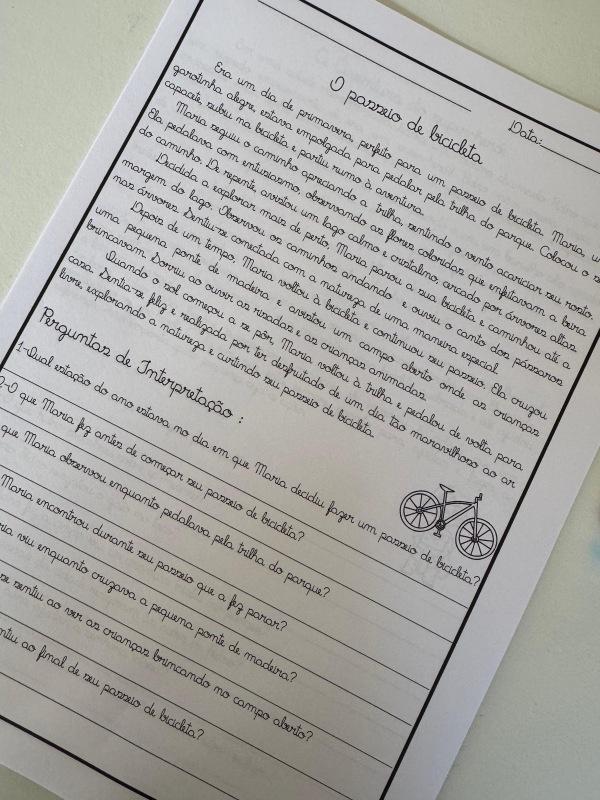 Data:
O passeio de bicicleta
Era um dia de primavera, perfeito para um passeio de bicicleta. Maria, u
garotinha alegre, estava empolgada para pedalar pela trilha do parque. Colocou o se
capacete, subiu na bicicleta e partiu rumo à aventura.
Maria seguiu o caminho apreciando a trilha, sentindo o vento acariciar seu rosto.
Ela pedalava com entusiasmo, observando as flores coloridas que enfeitavam a beira
do caminho. De repente, avistou um lago calmo e cristalino, cercado por árvores altas.
Decidida a explorar mais de perto, Maria parou a sua bicicleta e caminhou até a
margem do lago. Observou os caminhos andando e ouviu o canto dos pássaros
nas árvores. Sentiu-se conectada com a natureza de uma maneira especial.
Depois de um tempo, Maria voltou à bicicleta e continuou seu passeio. Ela cruzou
uma pequena ponte de madeira e avistou um campo aberto onde as crianças
brincavam. Sorriu ao ouvir as risadas e as crianças animadas.
Quando o sol começou a se pôr, Maria voltou à trilha e pedalou de volta para
casa. Sentia-se feliz e realizada por ter desfrutado de um dia tão maravilhoso ao ar
livre, explorando a natureza e curtindo seu passeio de bicicleta.
Perguntas de Interpretação :
1-Qual estação do ano estava no dia em que Maria decidiu fazer um passeio de bicicleta?
2-O que Maria fez antes de começar seu passeio de bicicleta?
que Maria observou enquanto pedalava pela trilha do parque?
Maria encontrou durante seu passeio que a fez parar?
ria viu enquanto cruzava a pequena ponte de madeira?
se sentiu ao ver as crianças brincando no campo aberto?
ntiu ao final de seu passeio de bicicleta?